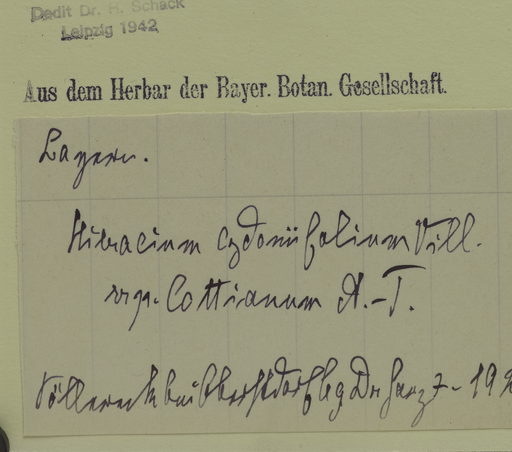 Dedit Dr. H. Schack
Leipzig 1942
Aus dem Herbar der Bayer. Botan. Gesellschaft.
Bayern.
Hieracium cydoniifolium Vill.
Cottianum A.-T.
bei Oberstdorf leg Dr